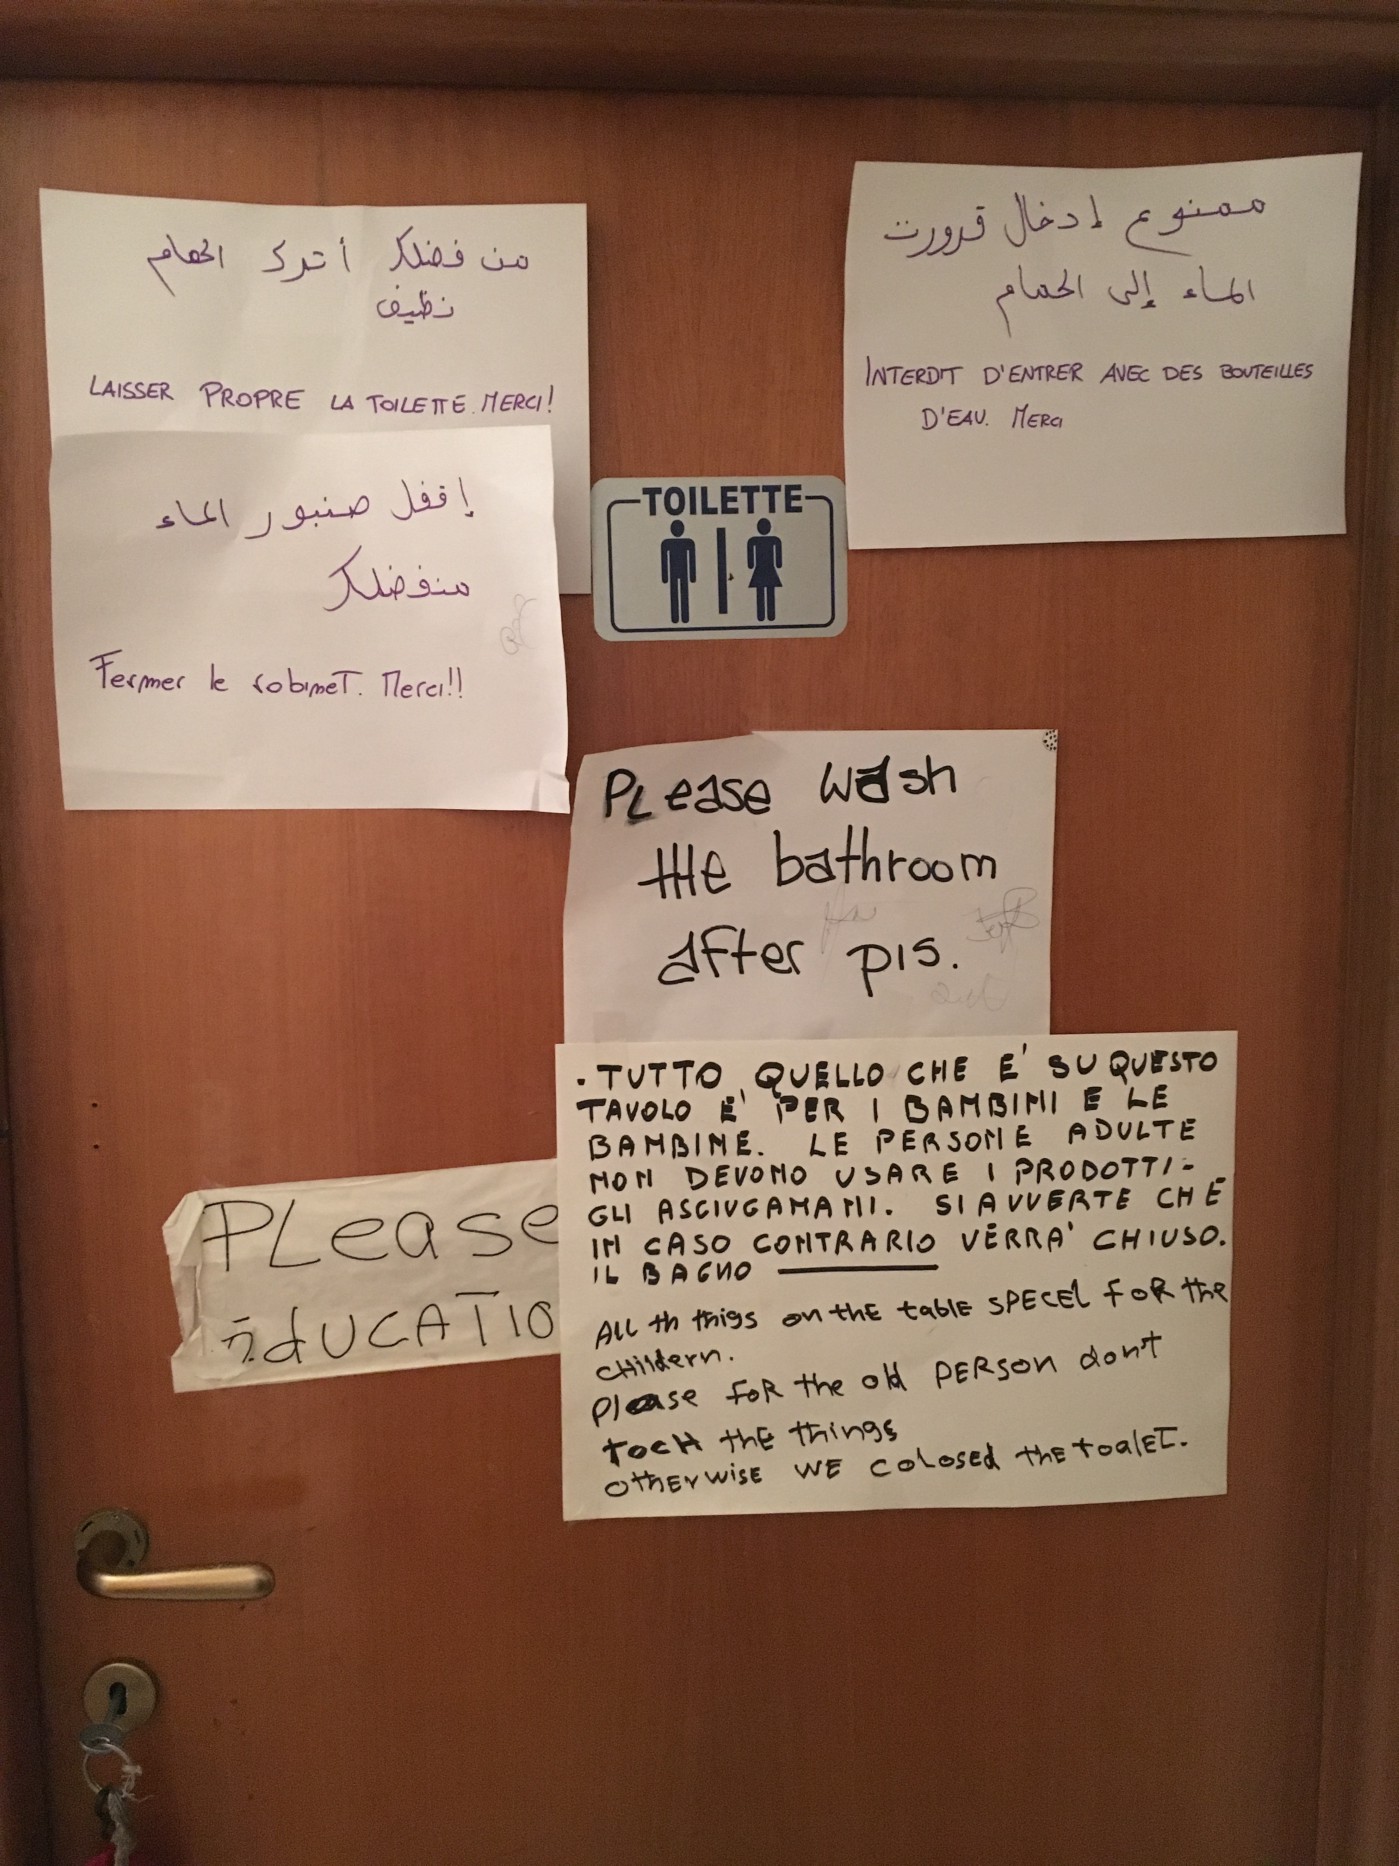 من فضلك أترك الحمام
نظيف
LAISSER PROPRE LA TOILETTE. MERCI!
ممنوع إدخال قرورت
الماء إلى الحمام
INTERDIT D'ENTRER AVEC DES BOUTEILLES
D'EAU. MERCI
إقفل صنبور الماء
منفضلك
Fermer le robineT. Merci!!
TOILETTE
PLease wash
the bathroom
after pis.
PLease
éducATIO
. TUTTO QUELLO CHE E' SU QUESTO
TAVOLO E' PER I BAMBINI E LE
BAMBINE. LE PERSONE ADULTE
NON DEVONO USARE I PRODOTTI -
GLI ASCIUGAMANI. SI AVVERTE CHE
IN CASO CONTRARIO VERRA' CHIUSO.
IL BAGNO
ALL th thigs on the table SPECEL FOR the
CHildern.
Please FOR the old PERSON don't
TOCH the things
OtherWISE WE COLOSED the toaleT.